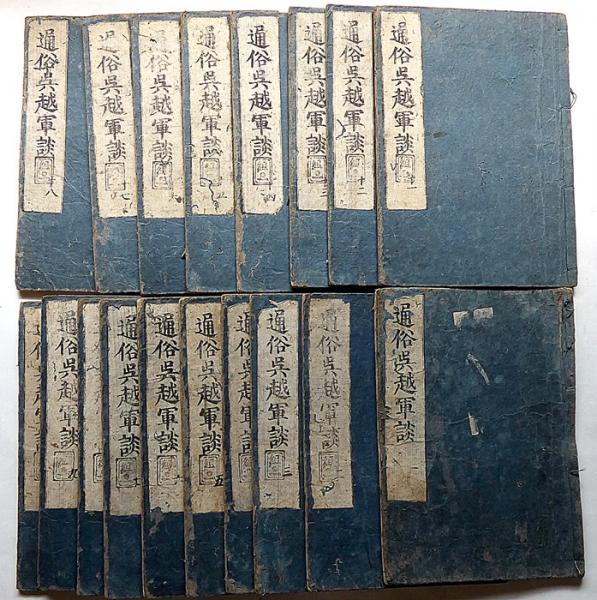 通俗呉越軍談
十八
通俗呉越軍談
十七
通俗呉越軍談
通俗呉越軍談
通俗呉越軍談
十四
通俗呉越軍談
十三
通俗呉越軍談
十二
通俗呉越軍談
通俗呉越軍談
通俗呉越軍談
九
通俗呉越軍談
通俗呉越軍談
通俗呉越軍談
五
通俗呉越軍談
通俗呉越軍談
三
通俗呉越軍談
四
通俗呉越軍談